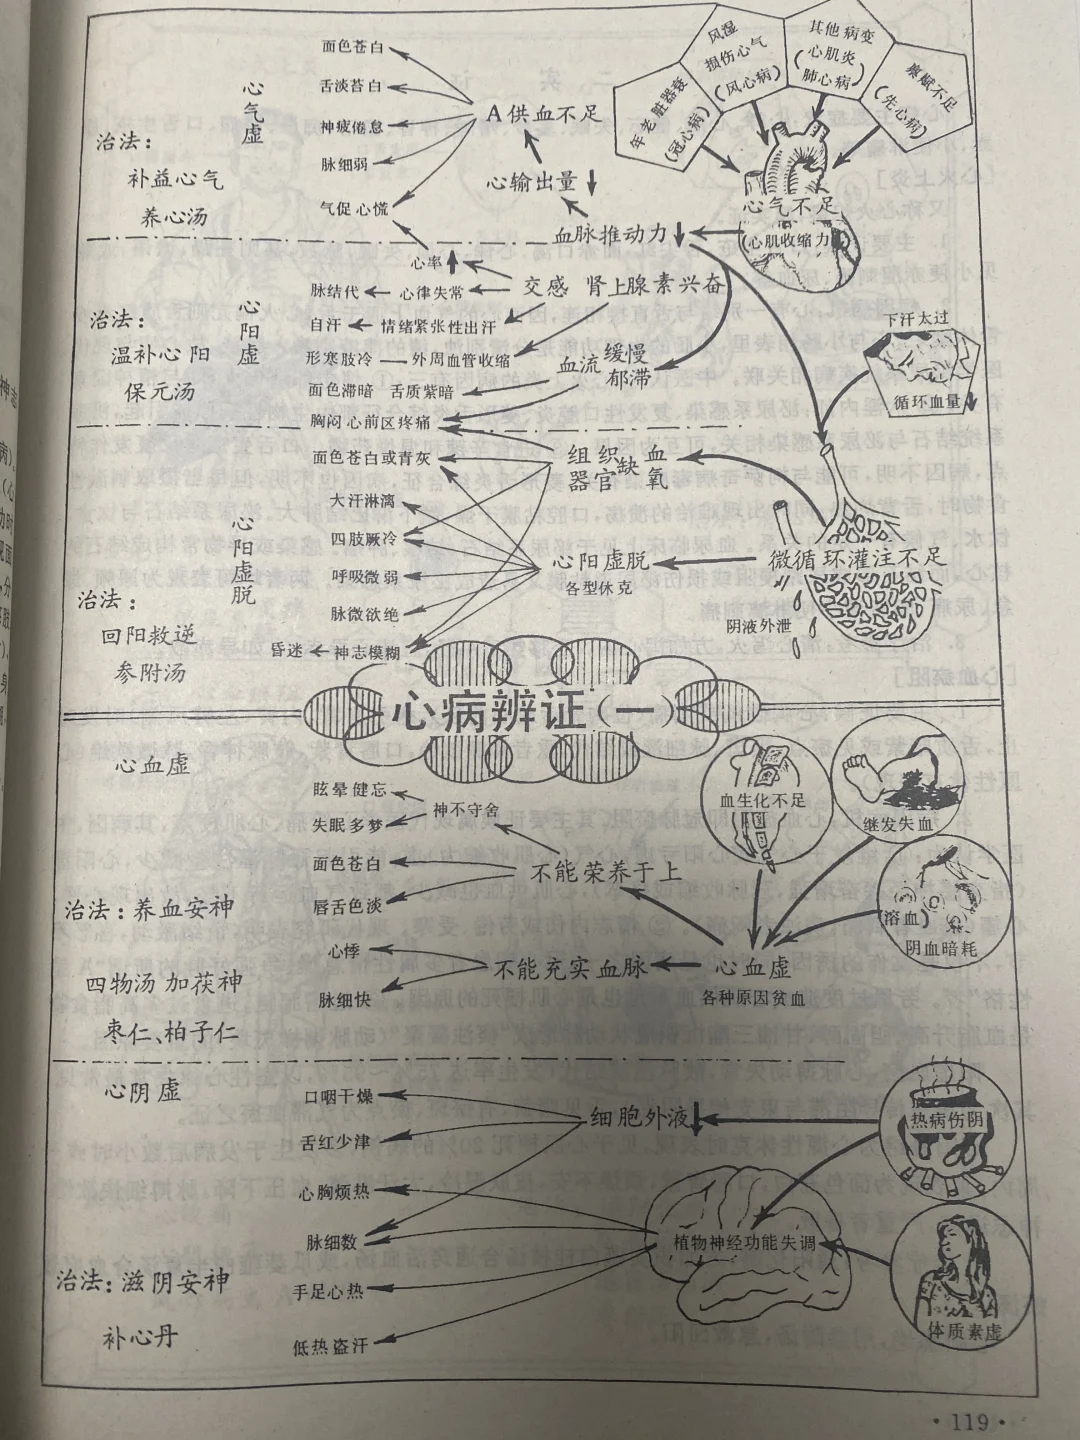 心气虚
治法：
补益心气
养心汤
面色苍白
舌淡苔白
神疲倦怠
脉细弱
气促心慌
A供血不足
心输出量↓
血脉推动力↓
年老脏器衰
（冠心病）
风湿
损伤心气
（风心病）
其他病变
（心肌炎
肺心病）
禀赋不足
（先心病）
心气不足
（心肌收缩力）
心阳虚
治法：
温补心阳
保元汤
心率↑
脉结代←心律失常
交感 肾上腺素兴奋
自汗←情绪紧张性出汗
形寒肢冷—外周血管收缩
血流缓慢
郁滞
面色滞暗 舌质紫暗
胸闷心前区疼痛
下汗太过
循环血量↓
心阳虚脱
治法：
回阳救逆
参附汤
面色苍白或青灰
大汗淋漓
四肢厥冷
呼吸微弱
脉微欲绝
昏迷←神志模糊
组织缺血
器官缺氧
心阳虚脱
各型休克
微循环灌注不足
阴液外泄
心病辨证（一）
心血虚
治法：养血安神
四物汤加茯神
枣仁、柏子仁
眩晕健忘
失眠多梦
神不守舍
面色苍白
唇舌色淡
不能荣养于上
心悸
脉细快
不能充实血脉
心血虚
各种原因贫血
血生化不足
继发失血
（溶血）
阴血暗耗
心阴虚
治法：滋阴安神
补心丹
口咽干燥
舌红少津
心胸烦热
脉细数
手足心热
低热盗汗
细胞外液↓
植物神经功能失调
热病伤阴
体质素虚
·119·